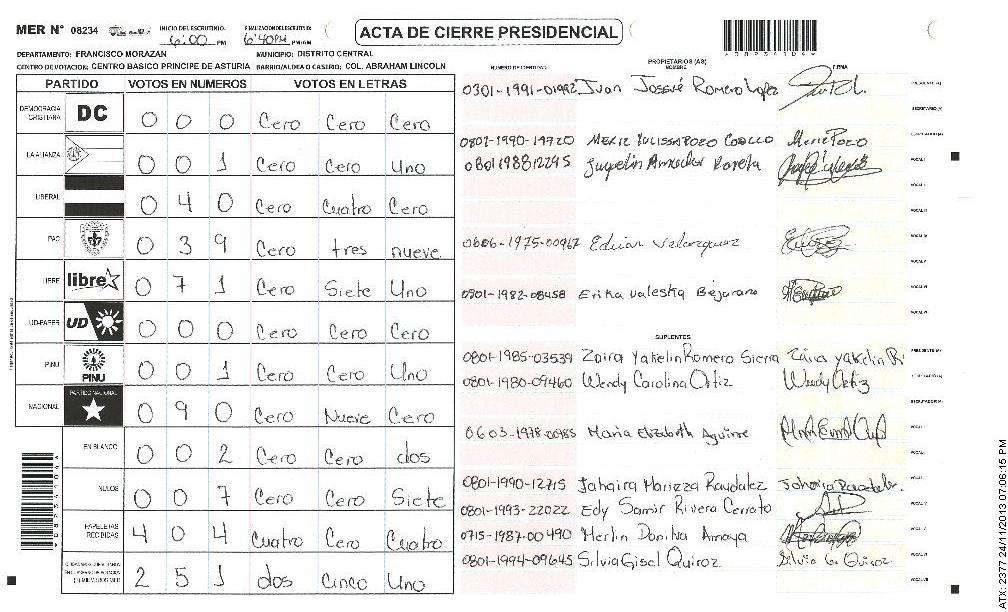 MER N° 08234 INICIO DEL ESCRUTINIO: 6:00 PM FINALIZACION DEL ESCRUTINIO: 6:40PM PM/AM
ACTA DE CIERRE PRESIDENCIAL
DEPARTAMENTO: FRANCISCO MORAZAN MUNICIPIO: DISTRITO CENTRAL
CENTRO DE VOTACION: CENTRO BASICO PRINCIPE DE ASTURIA BARRIO/ALDEA O CASERIO: COL. ABRAHAM LINCOLN
PARTIDO VOTOS EN NUMEROS VOTOS EN LETRAS
DEMOCRACIA CRISTIANA DC 0 0 0 Cero Cero Cero
LA ALIANZA 0 0 1 Cero Cero Uno
LIBERAL 0 4 0 Cero Cuatro Cero
PAC 0 3 9 Cero tres nueve
LIBRE libre 0 7 1 Cero Siete Uno
UD-FAPER UD 0 0 0 Cero Cero Cero
PINU PINU 0 0 1 Cero Cero Uno
NACIONAL PARTIDO NACIONAL 0 9 0 Cero Nueve Cero
EN BLANCO 0 0 2 Cero Cero dos
NULOS 0 0 7 Cero Cero Siete
PAPELETAS RECIBIDAS 4 0 4 Cuatro Cero Cuatro
2 5 1 dos Cinco Uno
NUMERO DE IDENTIDAD PROPIETARIOS (AS) NOMBRE FIRMA
0301-1991-01992 Juan Jossué Romero Lopez
0801-1990-14720 MERIE YULISSA POZO COELLO Merie Pozo
0801198812295 Amador
0606-1975-00967 Edwin Velazquez
0901-1982-08458 Erika Valeska Bejarano
SUPLENTES
0801-1985-03539 Zaira Yakelin Romero Sierra Zaira Yakelin R
0801-1980-09460 Wendy Carolina Ortiz Wendy Ortiz
0603-1978-00985 Maria Elizabeth Aguirre
0801-1990-12715 Jahaira Maritza Raudalez
0801-1993-22022 Edy Samir Rivera Cerrato
0715-1987-00490 Merlin Danilva Amaya
0801-1994-09645 Silvia Gisel Quiroz Silvia G. Quiroz
ATX: 2377 24/11/2013 07:06:15 PM